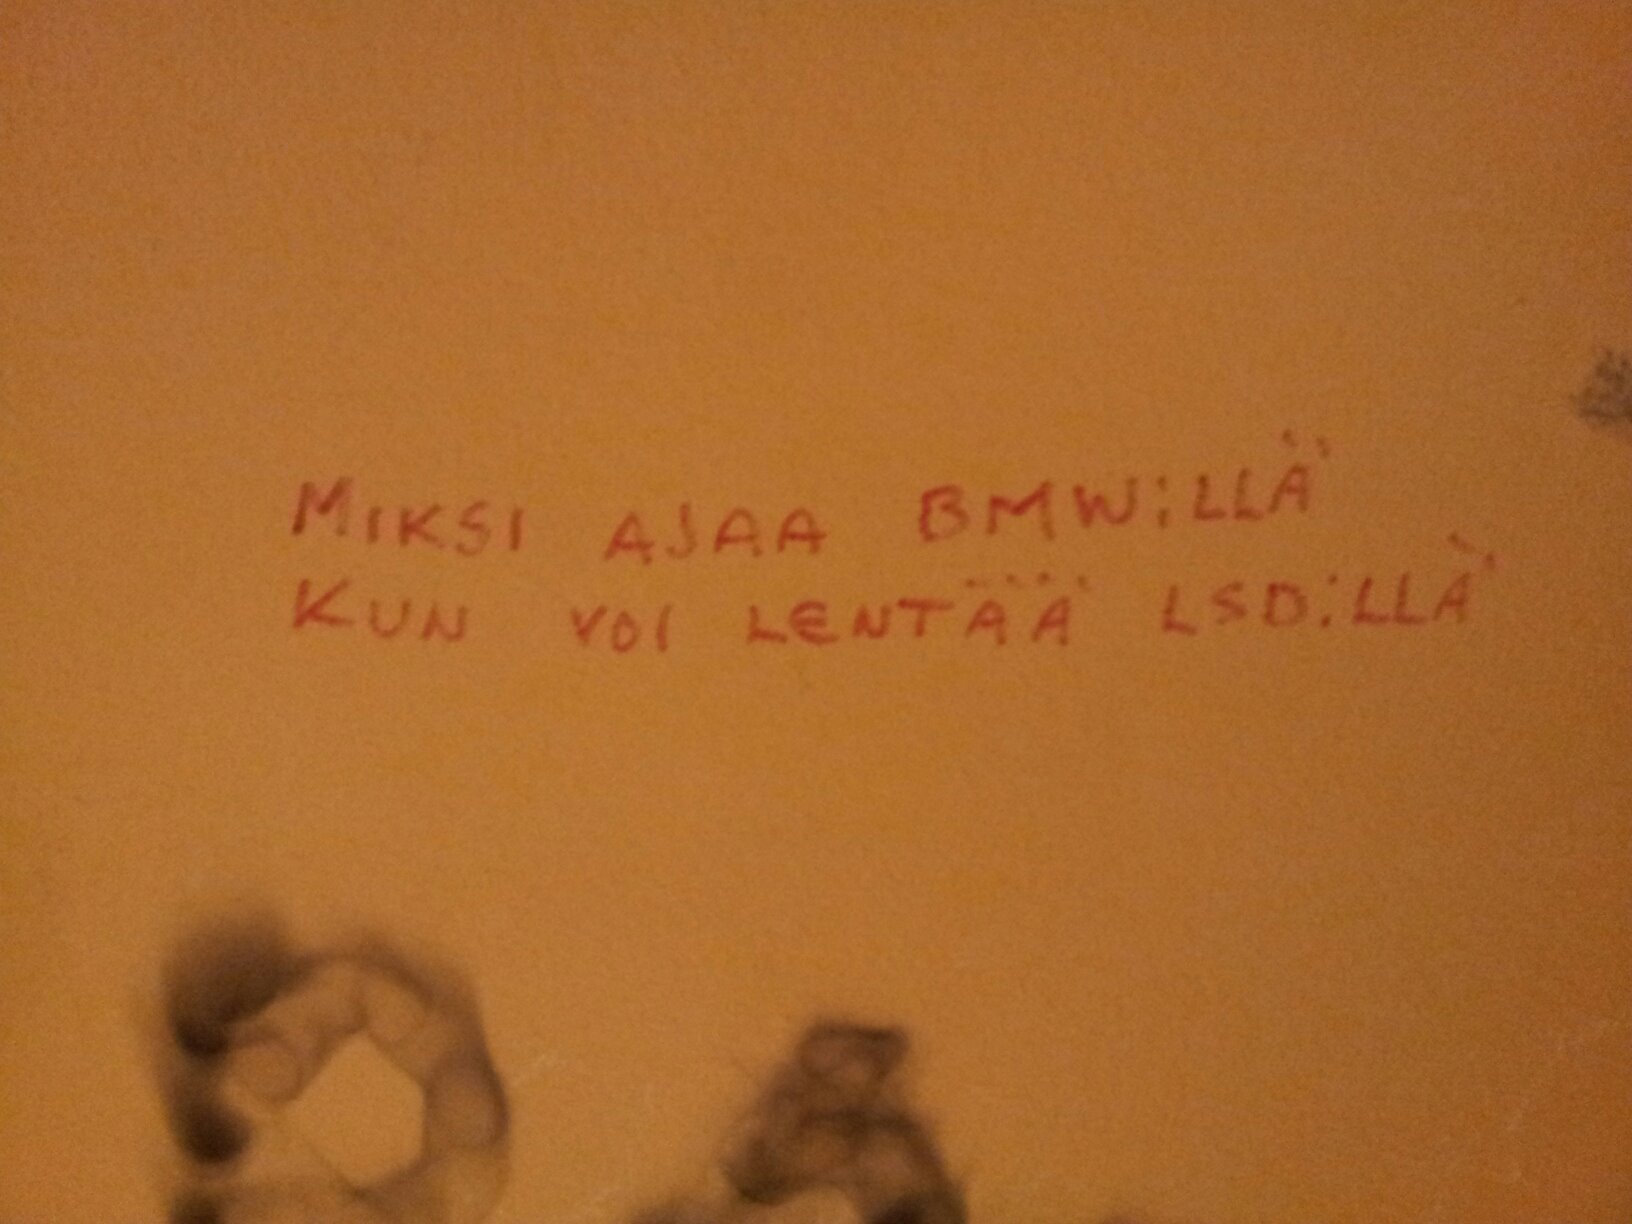 MIKSI AJAA BMW:LLÄ
KUN VOI LENTÄÄ LSD:LLÄ